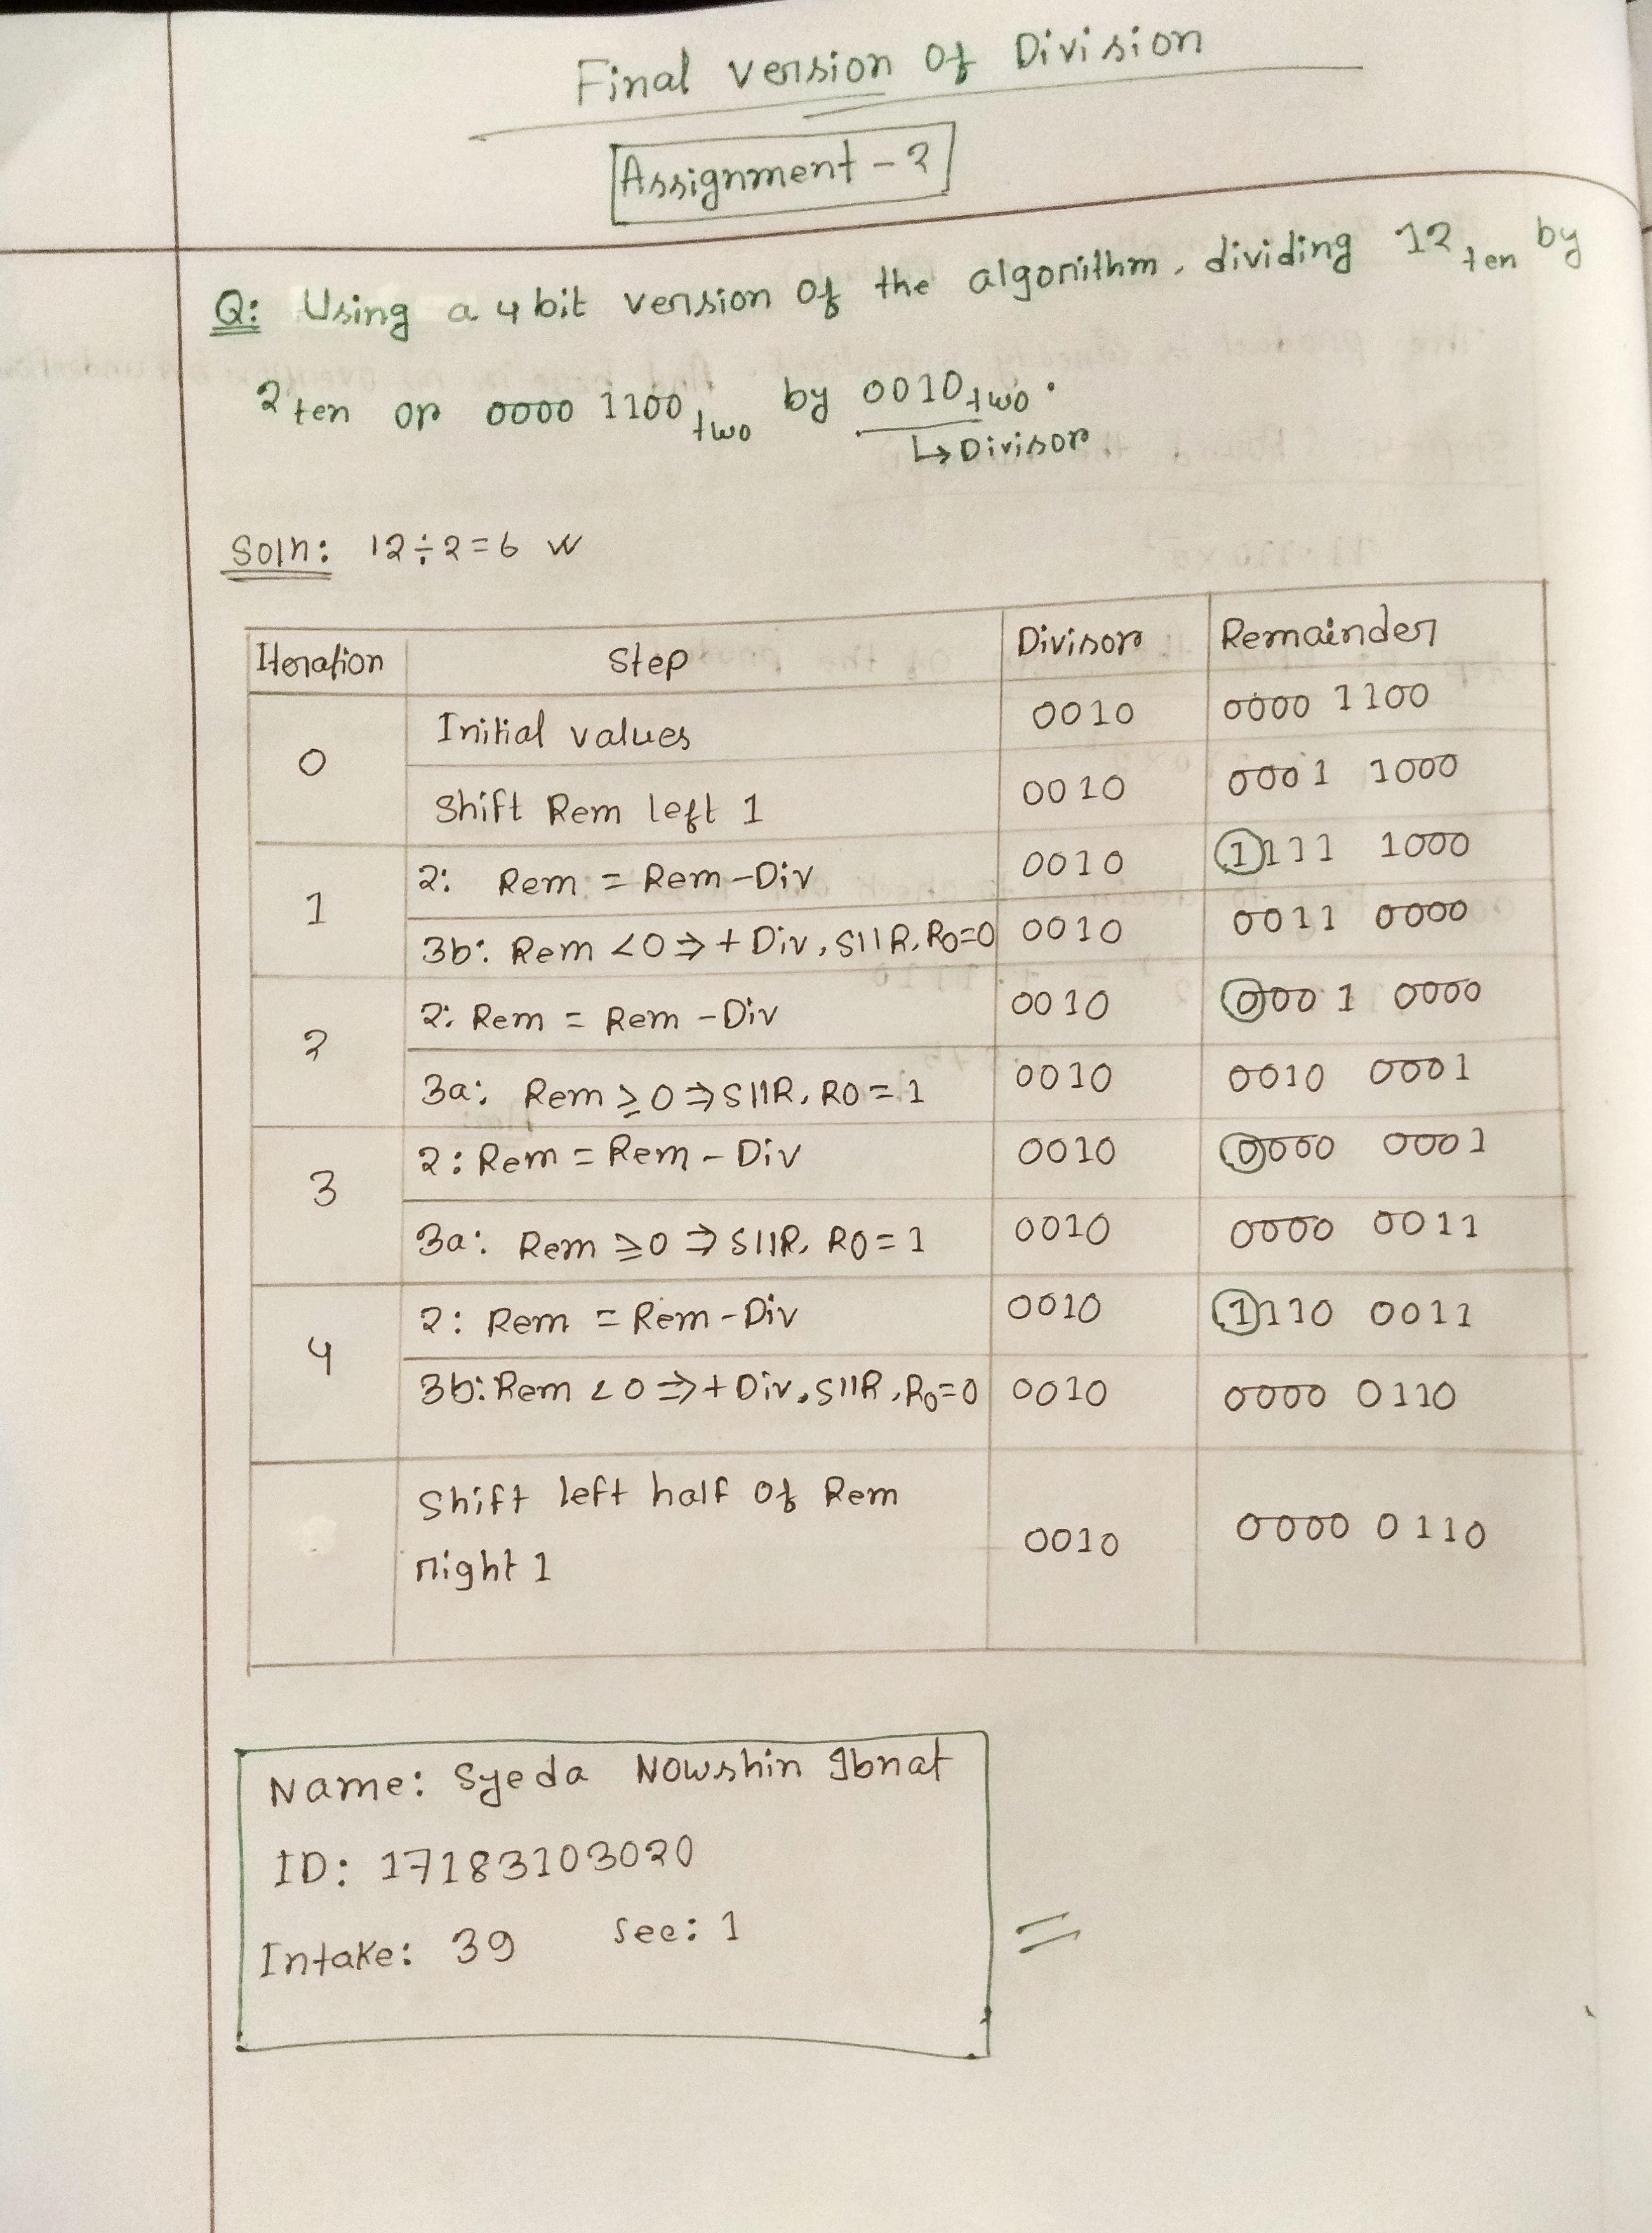 Final version of Division
Assignment - 2
Q: Using a 4 bit version of the algorithm, dividing 12 ten by
2 ten or 0000 1100 two by 0010 two.
↳ Divisor
Soln: 12÷2=6
Iteration Step Divisor Remainder
0 Initial values 0010 0000 1100
Shift Rem left 1 0010 0001 1000
1 2: Rem = Rem - Div 0010 1111 1000
3b: Rem <0 ⇒ + Div, SllR, R0=0 0010 0011 0000
2 2: Rem = Rem - Div 0010 0001 0000
3a: Rem ≥ 0 ⇒ SllR, R0 = 1 0010 0010 0001
3 2: Rem = Rem - Div 0010 0000 0001
3a: Rem ≥0 ⇒ SllR, R0 = 1 0010 0000 0011
4 2: Rem = Rem - Div 0010 1110 0011
3b: Rem <0 ⇒ + Div, SllR, R0=0 0010 0000 0110
Shift left half of Rem
right 1 0010 0000 0110
Name: Syeda Nowshin Ibnat
ID: 17183103020
Intake: 39 Sec: 1